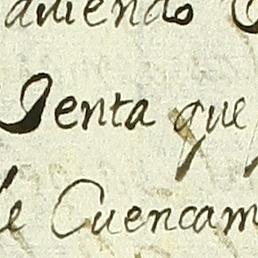 aviendo
Jenta que
de Cuencam